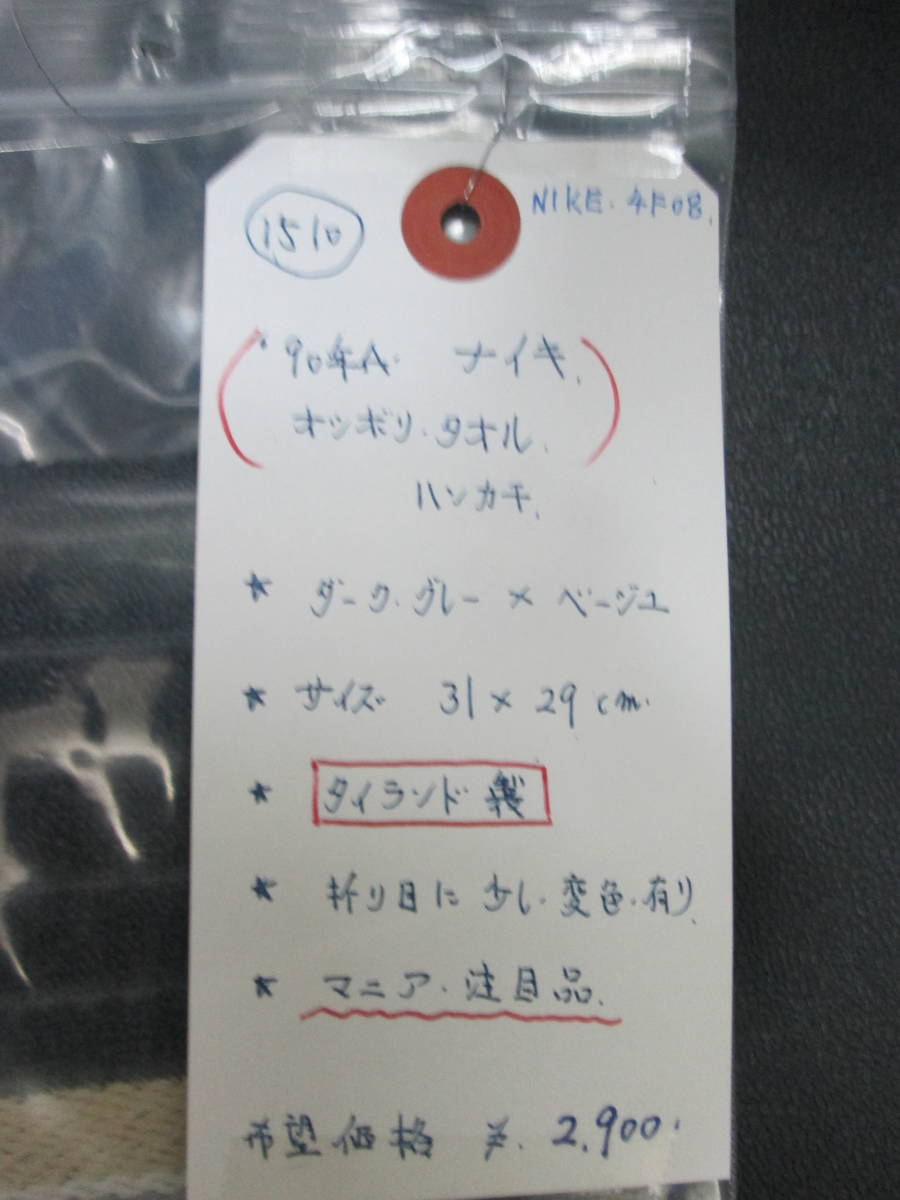 1510
NIKE. 4F08.
'90年A. ナイキ.
オッボリ.タオル.
ハンカチ.
★ ダーク.グレー × ベージュ
★ サイズ 31 × 29 cm.
★ タイランド製
★ 折り目に 少し.変色.有り.
★ マニア.注目品.
希望価格 ¥. 2,900.